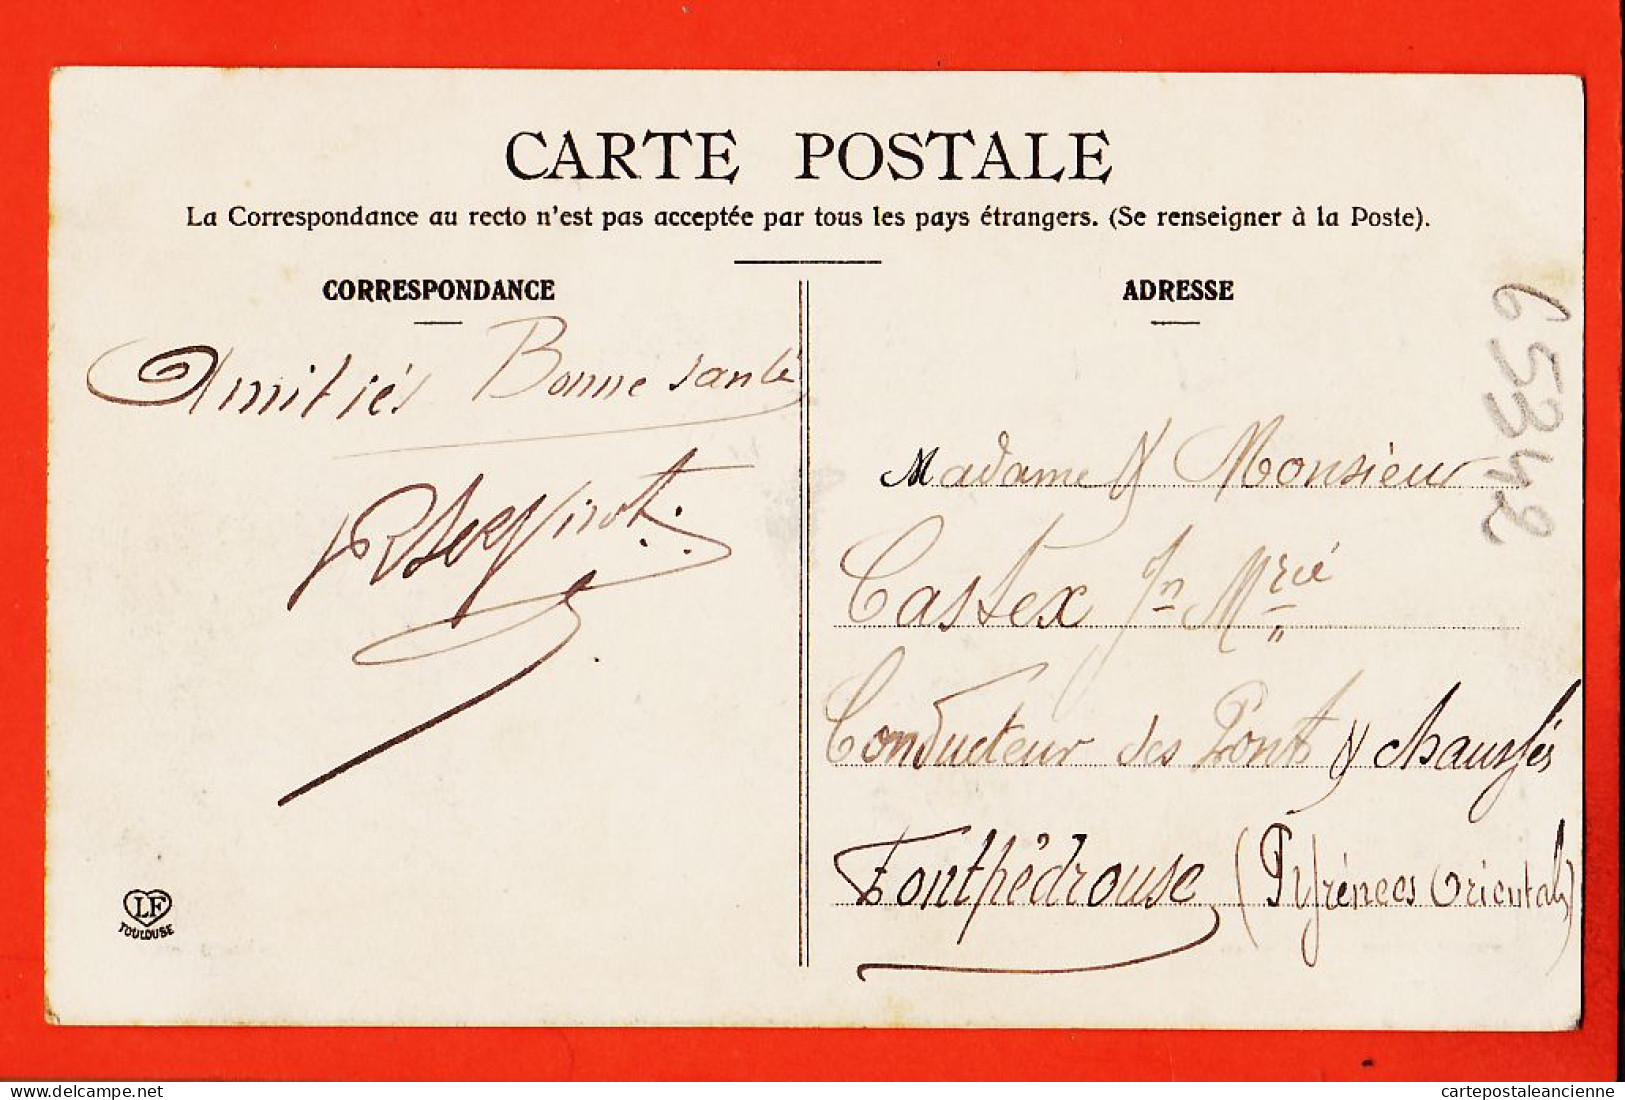 CARTE POSTALE
La Correspondance au recto n'est pas acceptée par tous les pays étrangers. (Se renseigner à la Poste).
CORRESPONDANCE
Amitiés Bonne santé
LF
TOULOUSE
ADRESSE
Madame & Monsieur
Castex Jn Mrie
Conducteur des Ponts & chaussées
Fontpédrouse (Pyrénées Orientales)
65342
delcampe.net
cartepostaleancienne